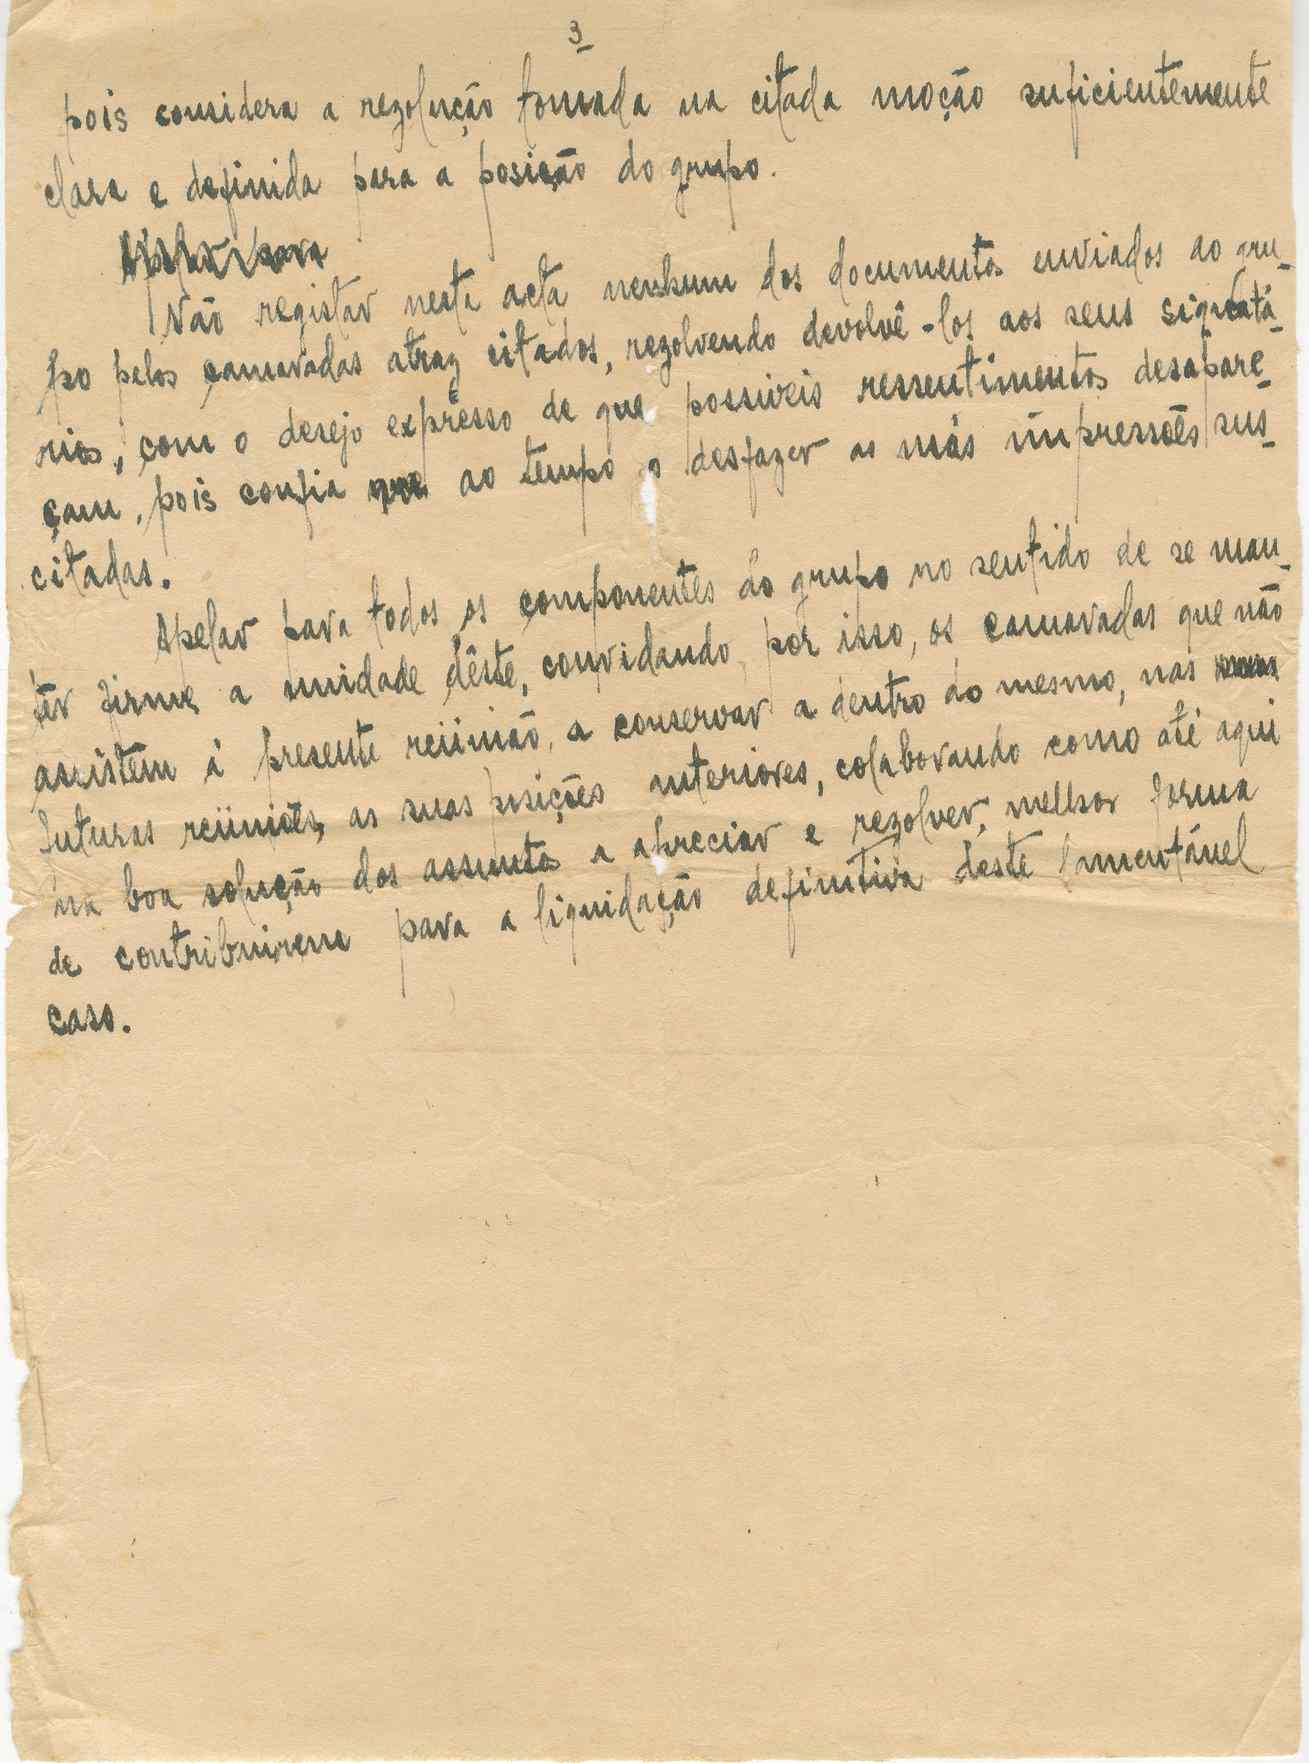 3
pois considera a rezolução tomada na citada moção suficientemente
clara e definida para a posição do grupo.
Não registar nesta acta nenhum dos documentos enviados ao gru-
po pelos camaradas atraz citados, rezolvendo devolvê-los aos seus signatá-
rios, com o desejo expresso de que possiveis ressentimentos desapare-
çam, pois confia ao tempo o desfazer as más impressões sus-
citadas.
Apelar para todos os componentes do grupo no sentido de se man-
ter firme a unidade dêste, convidando, por isso, os camaradas que não
assistem á presente reùnião, a conservar a dentro do mesmo, nas
futuras reùniões, as suas posições anteriores, colaborando como até aqui
na boa solução dos assuntos a apreciar e rezolver, melhor forma
de contribuirem para a liquidação definitiva deste lamentável
caso.